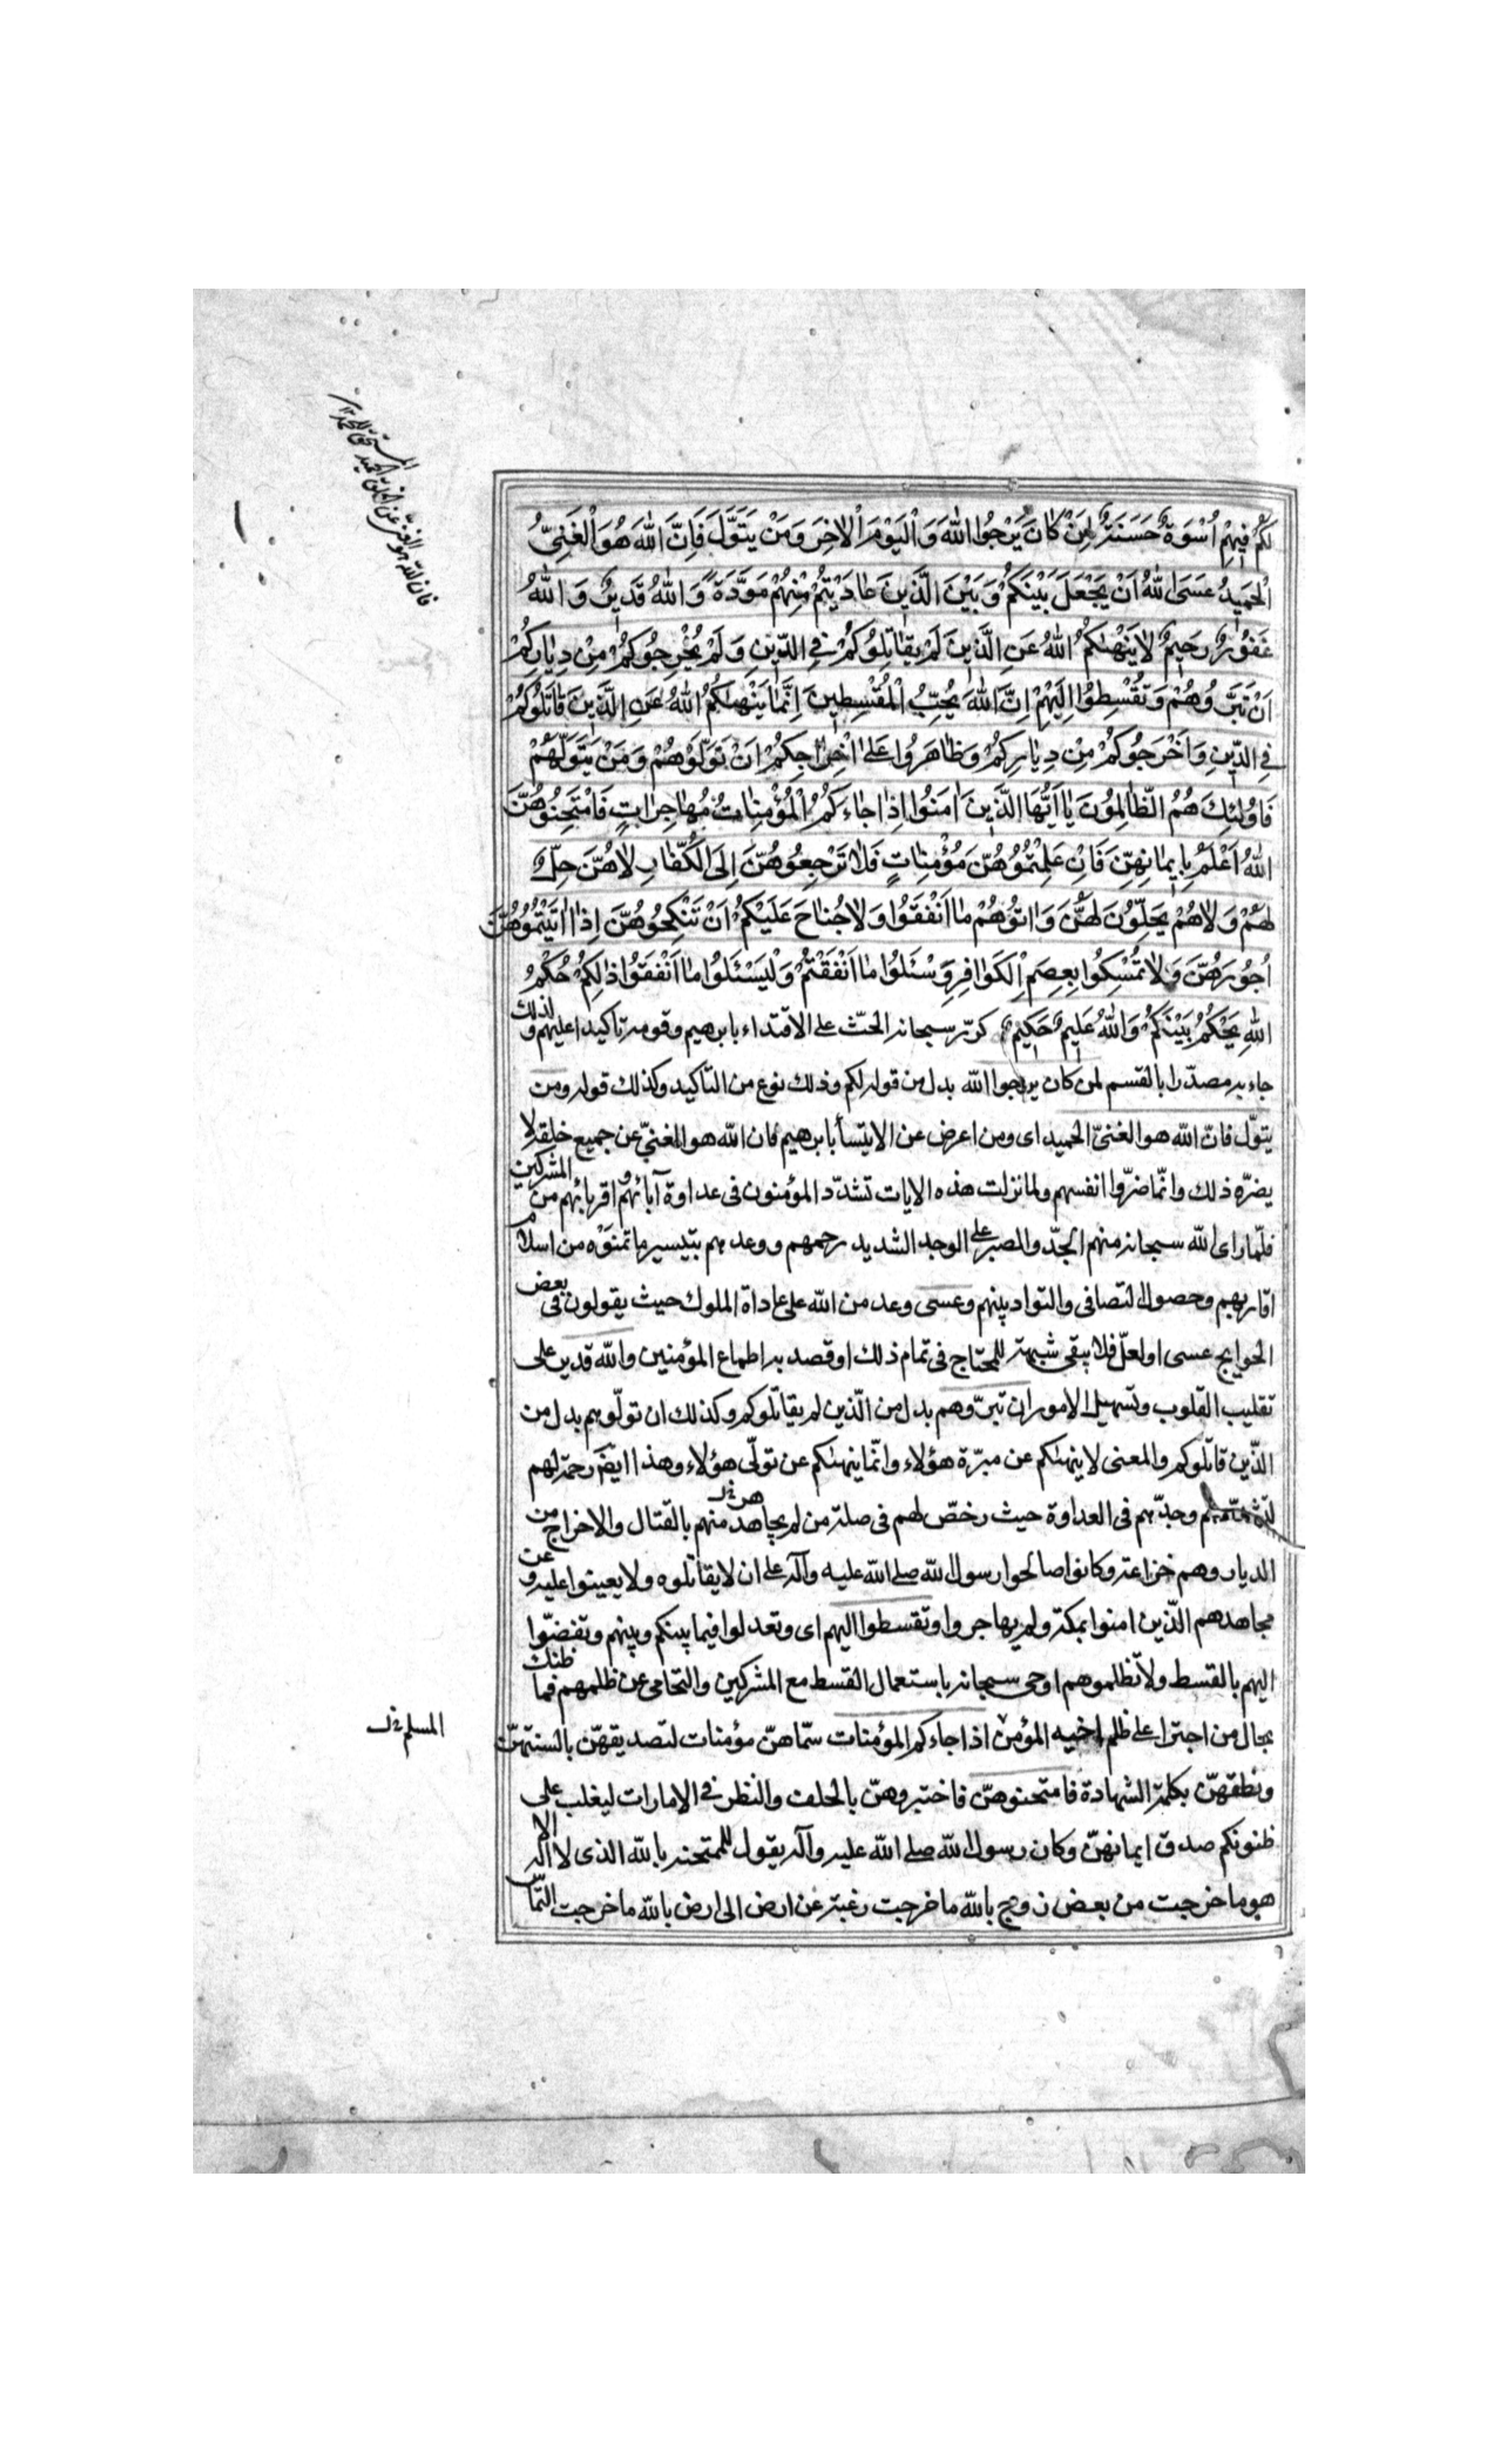 لَكُمْ فِيهِمْ اُسْوَةٌ حَسَنَةٌ لِمَنْ كٰانَ يَرْجُوا اللّٰهَ وَالْيَوْمَ الْاٰخِرَ وَمَنْ يَتَوَلَّ فَاِنَّ اللّٰهَ هُوَ الْغَنِيُّ
الْحَمِيدُ عَسَى اللّٰهُ اَنْ يَجْعَلَ بَيْنَكُمْ وَبَيْنَ الَّذِينَ عٰادَيْتُمْ مِنْهُمْ مَوَدَّةً وَاللّٰهُ قَدِيرٌ وَاللّٰهُ
غَفُورٌ رَحِيمٌ لٰا يَنْهٰىكُمُ اللّٰهُ عَنِ الَّذِينَ لَمْ يُقٰاتِلُوكُمْ فِي الدِّينِ وَلَمْ يُخْرِجُوكُمْ مِنْ دِيٰارِكُمْ
اَنْ تَبَرُّوهُمْ وَتُقْسِطُوا اِلَيْهِمْ اِنَّ اللّٰهَ يُحِبُّ الْمُقْسِطِينَ اِنَّمٰا يَنْهٰىكُمُ اللّٰهُ عَنِ الَّذِينَ قٰاتَلُوكُمْ
فِي الدِّينِ وَاَخْرَجُوكُمْ مِنْ دِيٰارِكُمْ وَظٰاهَرُوا عَلىٰ اِخْرٰاجِكُمْ اَنْ تَوَلَّوْهُمْ وَمَنْ يَتَوَلَّهُمْ
فَاُولٰئِكَ هُمُ الظّٰالِمُونَ يٰا اَيُّهَا الَّذِينَ اٰمَنُوا اِذٰا جٰاءَكُمُ الْمُؤْمِنٰاتُ مُهٰاجِرٰاتٍ فَامْتَحِنُوهُنَّ
اللّٰهُ اَعْلَمُ بِاِيمٰانِهِنَّ فَاِنْ عَلِمْتُمُوهُنَّ مُؤْمِنٰاتٍ فَلٰا تَرْجِعُوهُنَّ اِلَى الْكُفّٰارِ لٰا هُنَّ حِلٌّ
لَهُمْ وَلٰا هُمْ يَحِلُّونَ لَهُنَّ وَاٰتُوهُمْ مٰا اَنْفَقُوا وَلٰا جُنٰاحَ عَلَيْكُمْ اَنْ تَنْكِحُوهُنَّ اِذٰا اٰتَيْتُمُوهُنَّ
اُجُورَهُنَّ وَلٰا تُمْسِكُوا بِعِصَمِ الْكَوٰافِرِ وَسْئَلُوا مٰا اَنْفَقْتُمْ وَلْيَسْئَلُوا مٰا اَنْفَقُوا ذٰلِكُمْ حُكْمُ
اللّٰهِ يَحْكُمُ بَيْنَكُمْ وَاللّٰهُ عَلِيمٌ حَكِيمٌ كرّر سبحانه الحثّ على الاقتداء بابرهيم وقومه تاكيدا عليهم ولذلك
جاء به مصدّرا بالقسم لمن كان يرجوا اللّه بدل من قوله لكم وذلك نوع من التاكيد وكذلك قوله ومن
يتولّ فانّ اللّه هو الغنىّ الحميد اى ومن اعرض عن الايتسأ بابرهيم فان اللّه هو الغنىّ عن جميع خلقه لا
يضرّه ذلك وانّما ضرّوا انفسهم ولما نزلت هذه الايات تشدّد المؤمنون فى عداوة آبائهم واقربائهم من المشركين
فلمّا راى اللّه سبحانه منهم الجدّ والصبر على الوجد الشديد رحمهم ووعدهم بتيسير ما تمنّوه من اسلام
اقاربهم وحصول التصافى والتواد بينهم وعسى وعد من اللّه على عاداة الملوك حيث يقولون فى بعض
الحوايج عسى او لعلّ فلا يبقى شبهة للمحتاج فى تمام ذلك او قصد به اطماع المؤمنين واللّه قدير على
تقليب القلوب وتسهيل الامور ان تبرّوهم بدل من الّذين لم يقاتلوكم وكذلك ان تولّوهم بدل من
الّذين قاتلوكم والمعنى لا ينهىٰكم عن مبرّة هؤلاء وانّما ينهىٰكم عن تولّى هؤلاء وهذا ايضَ رحمة لهم
لتشدّدهم وجدّهم فى العداوة حيث رخصّ لهم فى صلة من لم يجاهدهم منهم بالقتال والاخراج من
الديار وهم خزاعة وكانوا صالحوا رسول اللّه صلى اللّه عليه وآله على ان لا يقاتلوه ولا يعينوا عليه وعن
مجاهدهم الّذين امنوا بمكة ولم يهاجروا وتقسطوا اليهم اى وتعدلوا فيما بينكم وبينهم وتفضّوا
اليهم بالقسط ولا تظلموهم اوحى سبحانه باستعمال القسط مع المشركين والتحامى عن ظلمهم فما ظنك
بحال من اجترا على ظلم اخيه المؤمن اذا جاءكم المؤمنات سمّاهنّ مؤمنات لتصديقهنّ بالسنتهنّ
ونطقهنّ بكلمة الشهادة فامتحنوهنّ فاختبروهنّ بالحلف والنظر فى الامارات ليغلب على
ظنونكم صدق ايمانهنّ وكان رسول اللّه صلى اللّه عليه وآله يقول للممتحنه باللّه الذى لا اله الا
هو ما خرجت من بعض زوج باللّه ما خرجت رغبة عن ارض الى ارض باللّه ما خرجت التماس
فان اللّه هو الغنىّ عن الخلق الحميد المستحق للحمد
المسلم